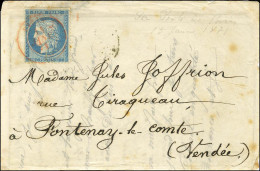 Madame Jules Joffrion
rue Tiraqueau
à Fontenay-le-comte
(Vendée)